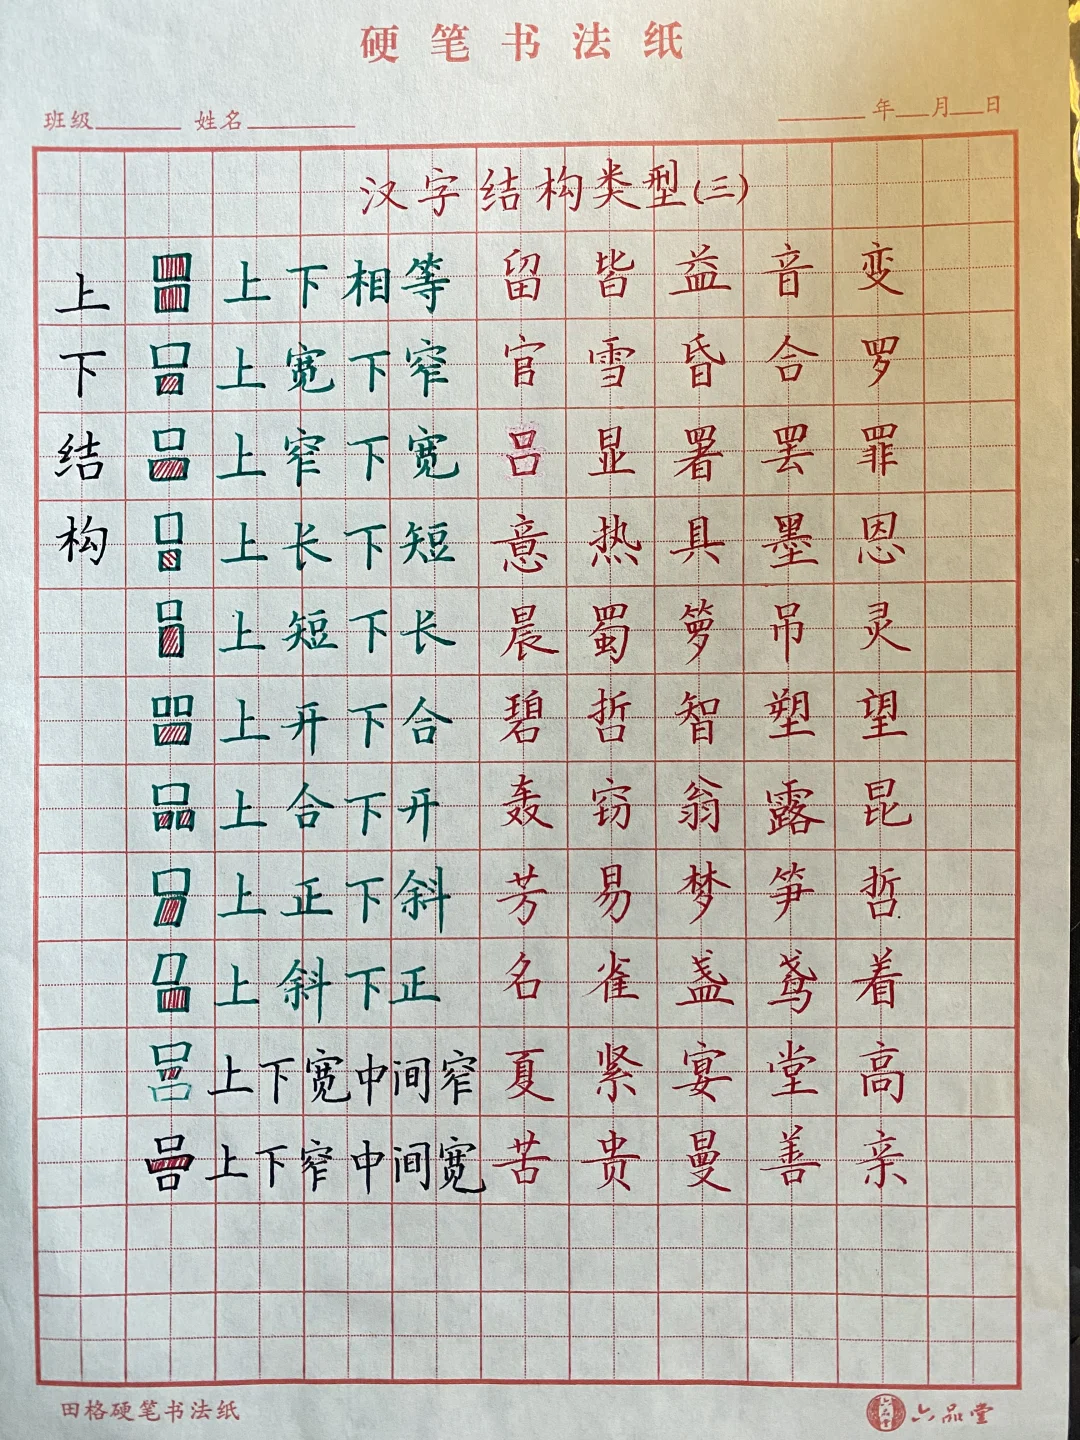 硬笔书法纸
班级 姓名 年 月 日
汉字结构类型(三)
上 上下相等 留 皆 益 音 变
下 上宽下窄 官 雪 昏 合 罗
结 上窄下宽 吕 显 署 罢 罪
构 上长下短 意 热 具 墨 恩
上短下长 晨 蜀 箩 吊 灵
上开下合 碧 哲 智 塑 望
上合下开 轰 窃 翁 露 昆
上正下斜 芳 易 梦 笋 哲
上斜下正 名 雀 盏 鸢 着
上下宽中间窄 夏 紧 宴 堂 高
上下窄中间宽 苦 贵 曼 善 亲
田格硬笔书法纸 六品堂